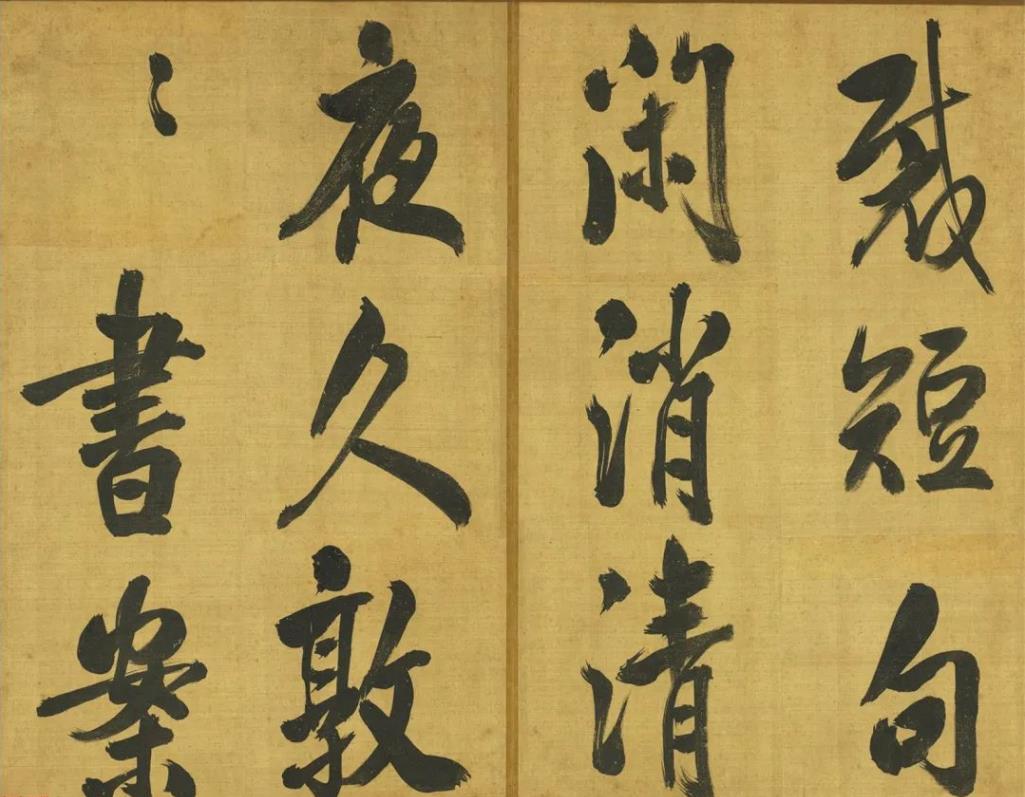 裁短句
閑消清
夜久敦
〻書案